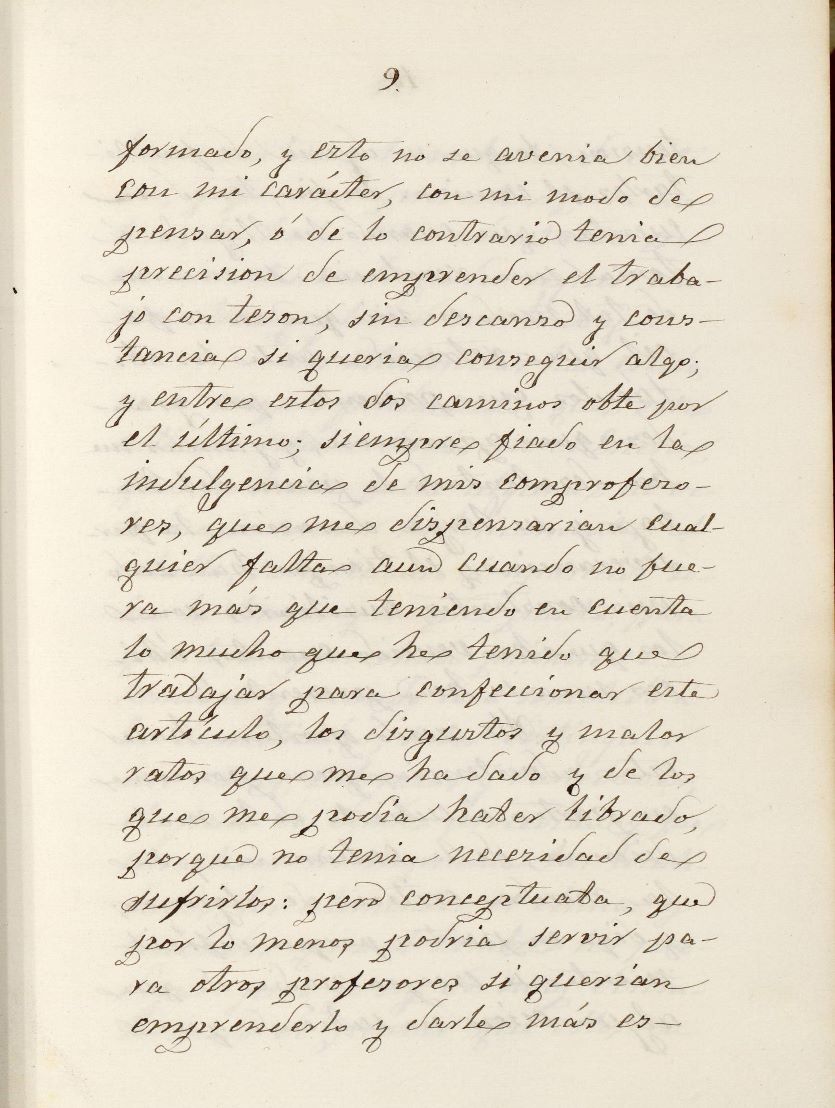 9.
formado, y esto no se avenia bien
con mi carácter, con mi modo de
pensar, ó de lo contrario tenia
precision de emprender el traba-
jo con teson, sin descanso y cons-
tancia si queria conseguir algo;
y entre estos dos caminos obte por
el último; siempre fiado en la
indulgencia de mis comprofeso-
res, que me dispensarian cual-
quier falta aun cuando no fue-
ra más que teniendo en cuenta
lo mucho que he tenido que
trabajar para confeccionar este
artículo, los disgustos y malos
ratos que me ha dado y de los
que me podia haber librado,
porque no tenia necesidad de
sufrirlos: pero conceptuaba, que
por lo menos podria servir pa-
ra otros profesores si querian
emprenderlo y darle más es-